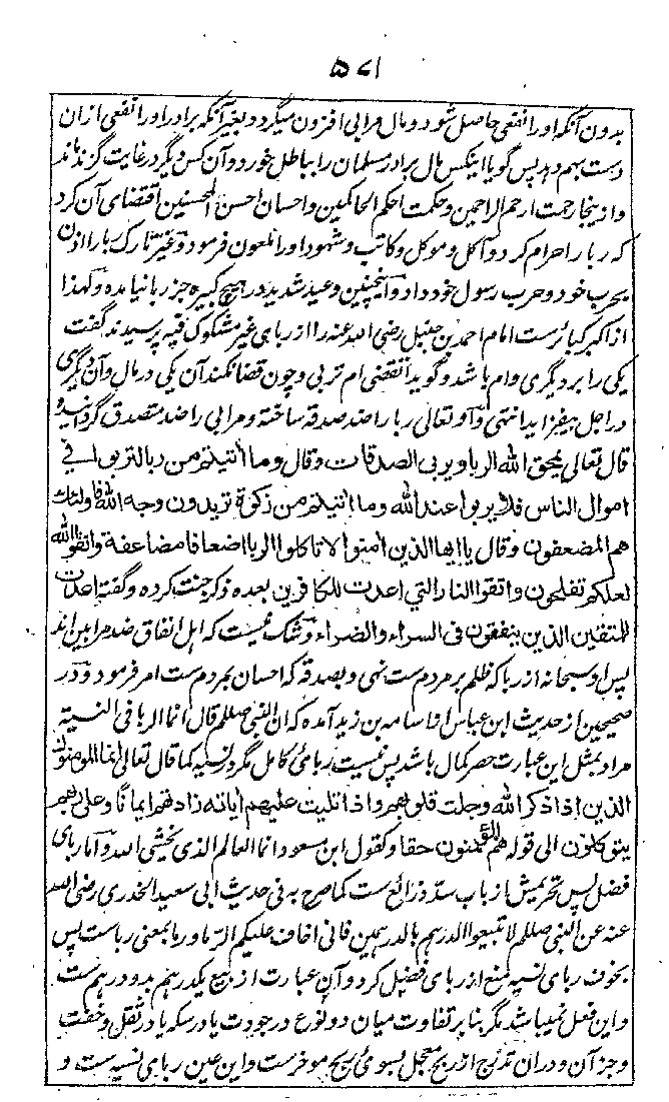 ۵۷۱
بدون آنکه او را نفعی حاصل شود و مال مرابی افزون میگردد بغیر آنکه برادر او را نفعی ازان
دست بهم دهد پس گویا اینکس مال برادر مسلمان را بباطل خورد و آن کس دیگر در غایت گزند ماند
و ازینجا رحمت ارحم الراحمین و حکمت احکم الحاکمین و احسان احسن المحسنین اقتضای آن کرد
که ربا را حرام کرد و آکل و موکل و کاتب و شهود او را ملعون فرمود و غیر تارک ربا را اذن
بحرب خود و حرب رسول خود داد و اینچنین وعید شدید در هیچ کبیره جز ربا نیامده و لهذا
از اکبر کبائرست امام احمد بن حنبل رضی الله عنه را از ربای غیر مشکوک فیه پرسیدند گفت
یکی را بر دیگری وام باشد و گوید اتقضی ام تربی و چون قضا نکند آن یکی در مال و آن دیگری
در اجل بیفزاید انتهی و او تعالی ربا را ضد صدقه ساخته و مرابی را ضد متصدق گردانیده
قال تعالى يمحق الله الربا ويربي الصدقات وقال وما اٰتيتم من ربا لتربو في
اموال الناس فلا يربوا عند الله وما اٰتيتم من زكوة تريدون وجه الله فاولئك
هم المضعفون وقال يا ايها الذين اٰمنوا لا تاكلوا الربا اضعافا مضاعفة واتقوا الله
لعلكم تفلحون واتقوا النار التي اعدت للكافرين بعده ذکر جنت کرده و گفته اعدت
للمتقين الذين ينفقون في السراء والضراء و شک نیست که اهل انفاق ضد مرابین اند
پس او سبحانه از ربا که ظلم بر مردم ست نهی و بصدقه که احسان بمردم ست امر فرمود و در
صحیحین از حدیث ابن عباس از اسامه بن زید آمده که ان النبي صللم قال انما الربا فی النسیة
مراد بمثل این عبارت حصر کمال باشد پس نیست ربای کامل مگر در نسیه کما قال تعالی انما المومنون
الذين اذا ذكر الله وجلت قلوبهم واذا تليت عليهم اٰياته زادتهم ايمانا وعلى ربهم
يتوكلون الى قوله هم المؤمنون حقا و کقول ابن مسعود انما العالم الذي يخشى الله و اما ربای
فضل پس تحریمش از باب سد ذرائع ست کما صرح به فی حدیث ابی سعید الخدری رضی الله
عنه عن النبی صللم لا تبیعوا الدرهم بالدرهمین فانی اخاف علیکم الرما و رما بمعنی ربا ست پس
بخوف ربای نسیه منع از ربای فضل کرد و آن عبارت از بیع یکدرهم بدو درهم ست
و این فعل نمیباشد مگر بنا بر تفاوت میان دو نوع در جودت یا در سکه یا در ثقل و خفت
و جز آن و در آن تدرج از ربح معجل بسوی ربح موخر ست و این عین ربای نسیه ست و